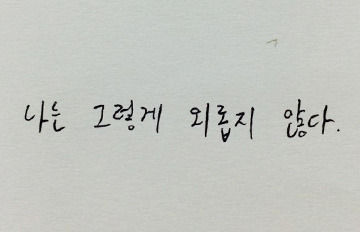 나는 그렇게 외롭지 않다.